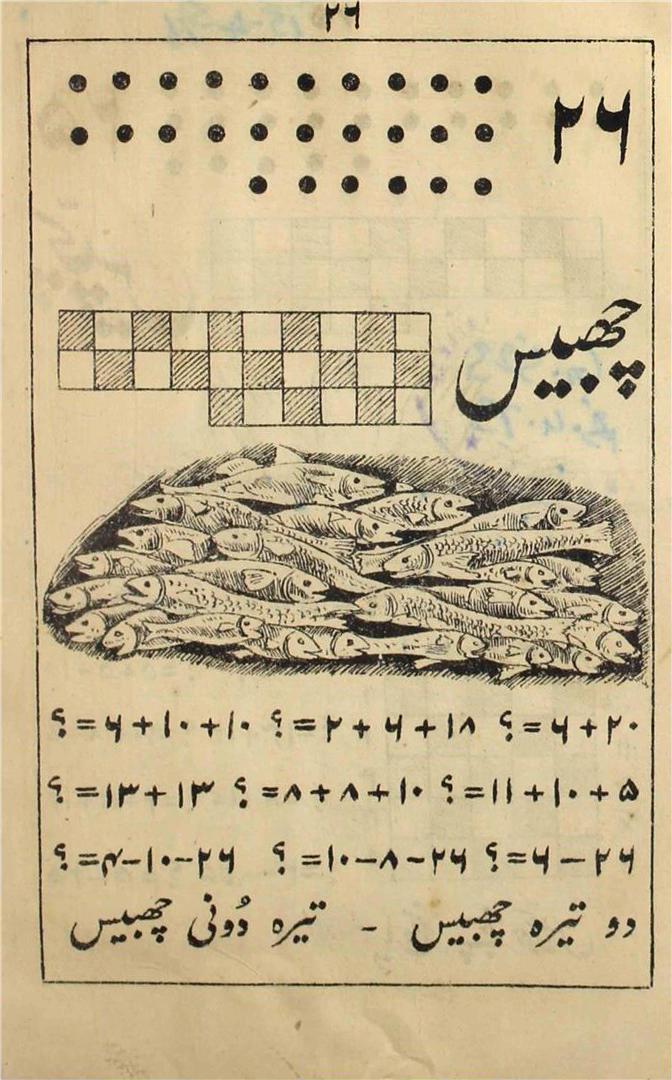 ۲۶
۲۶
چھبیس
۲۰+۶=؟ ۱۸+۶+۲=؟ ۱۰+۱۰+۶=؟
۵+۱۰+۱۱=؟ ۱۰+۸+۸=؟ ۱۳+۱۳=؟
۲۶-۶=؟ ۲۶-۸-۱۰=؟ ۲۶-۱۰-۴=؟
دو تیرہ چھبیس - تیرہ دُونی چھبیس